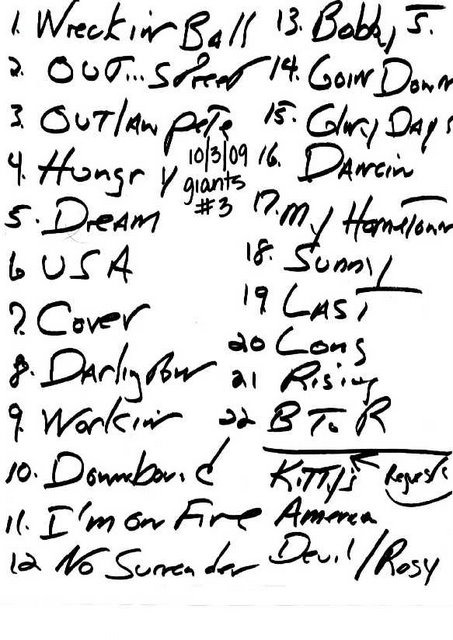 1. Wreckin Ball
2. OUT... Street
3. OUTlaw PeTe
4. Hungry
5. Dream
6 USA
7. Cover
8. Darlington
9. Workin
10. Downbound
11. I'm on Fire
12 No Surrender
10/3/09
giants
#3
13. Bobby J.
14. Goin Down
15. Glory Days
16. Dancin
17. My HomeTown
18. Sunny
19 LAST
20 Long
21 Rising
22 B To R
KiTTy's Requests
America
Devil/Rosy